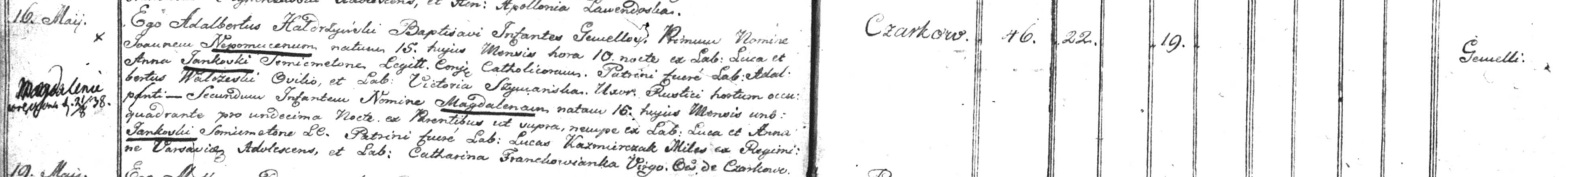 et Hon: Apollonia Lawendoska.
16. Maij. Ego Adalbertus Baptisavi Infantes Gemellos. Primum Nomine
x Joannem Nepomucenum natum 15. hujus Mensis hora 10. nocte ex Lab: Luca et
Anna Jankoski Semicmetone Legitt. Conj: Catholicorum. Patrini fueré Lab: Adal-
bertus Walczeski Ovilio, et Lab: Victoria Szymańska. Uxor. Rustici hortum occu:
panti — Secundum Infantem Nomine Magdalenam natam 15. hujus Mensis uno:
quadrante pro undecima Nocte. ex Parentibus ut supra, nempe ex Lab: Luca et Anna
Jankoskii Semicmetone LC. Patrini fueré Lab: Lucas Kazmierczak Miles ex Regimi:
ne Varsaviæ Adolescens, et Lab: Catharina Franckowianka Virgo. Oes de Czarkowo.
Magdalenie
38.
Czarkow. 46. 22. 19. Gemelli.
19. Maij. Ego